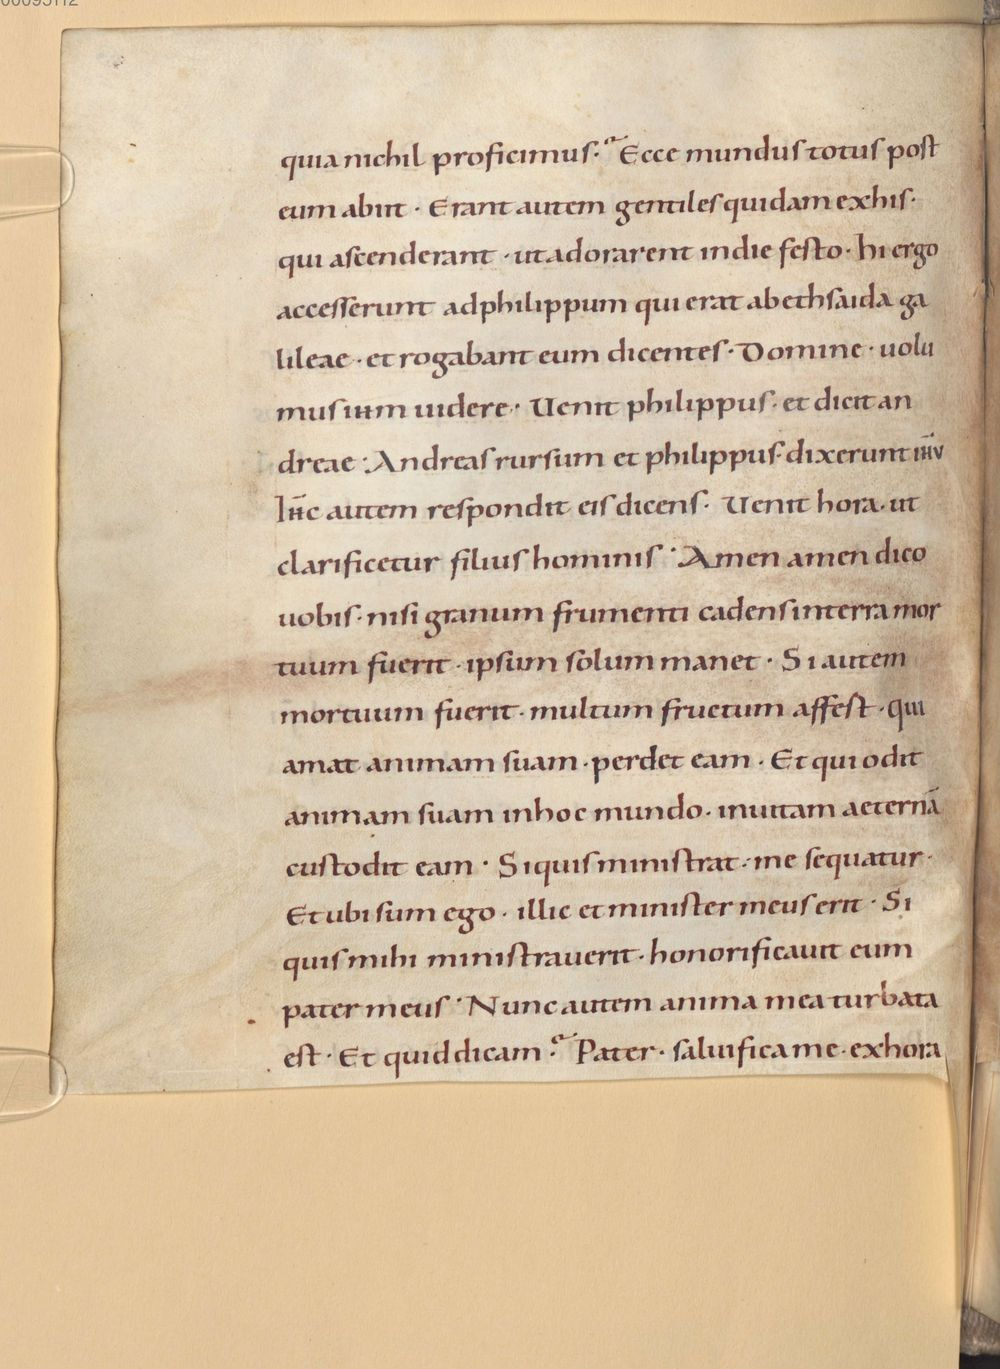 00095112
quia nichil proficimus· Ecce mundus totus post
eum abiit · Erant autem gentiles quidam exhis·
qui ascenderant · ut adorarent indie festo · hi ergo
accesserunt adphilippum qui erat abethsaida ga
lileae · et rogabant eum dicentes · Domine · uolu
mus ihm uidere · Uenit philippus · et dicit an
dreae · Andreas rursum et philippus · dixerunt ihu
Ihc autem respondit eis dicens · Uenit hora · ut
clarificetur filius hominis · Amen amen dico
uobis · nisi granum frumenti cadens interra mor
tuum fuerit · ipsum solum manet · Si autem
mortuum fuerit · multum fructum affest · qui
amat animam suam · perdet eam · Et qui odit
animam suam inhoc mundo · inuitam aeternā
custodit eam · Siquis ministrat · me sequatur ·
Et ubi sum ego · illic et minister meus erit · Si
quis mihi ministrauerit · honorificauit eum
pater meus · Nunc autem anima mea turbata
est · Et quid dicam · Pater · saluifica me · exhora